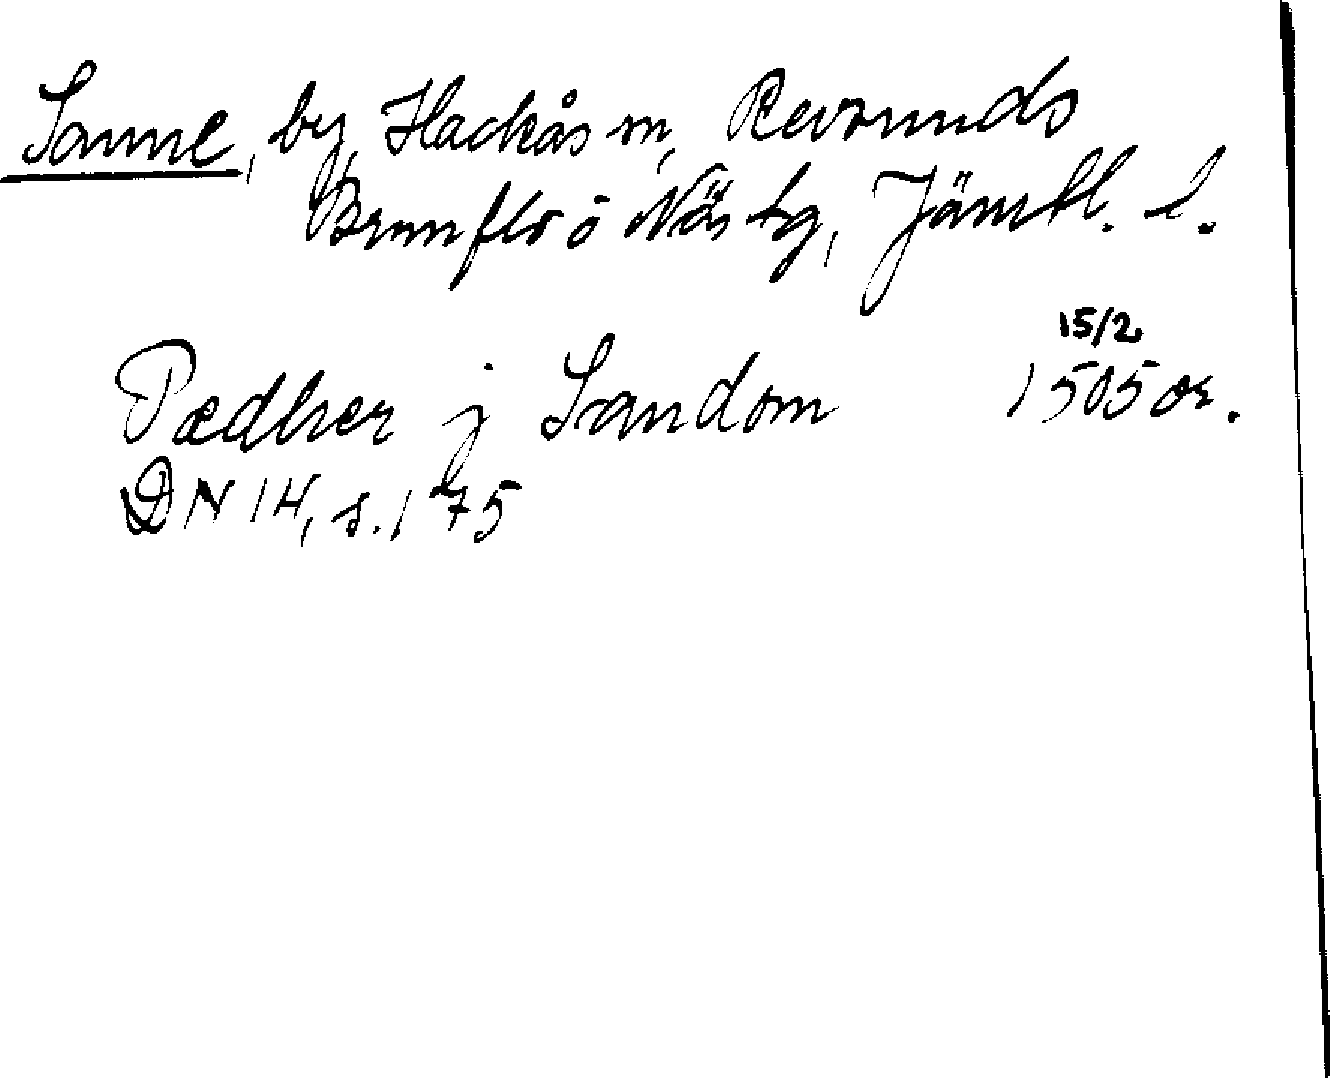 Sanne, by, Hackås sn, Revsunds
Brunflo o Näs tg, Jämtl. l.
15/2
Pædher j Sandom 1505 or.
DN 14, s. 175